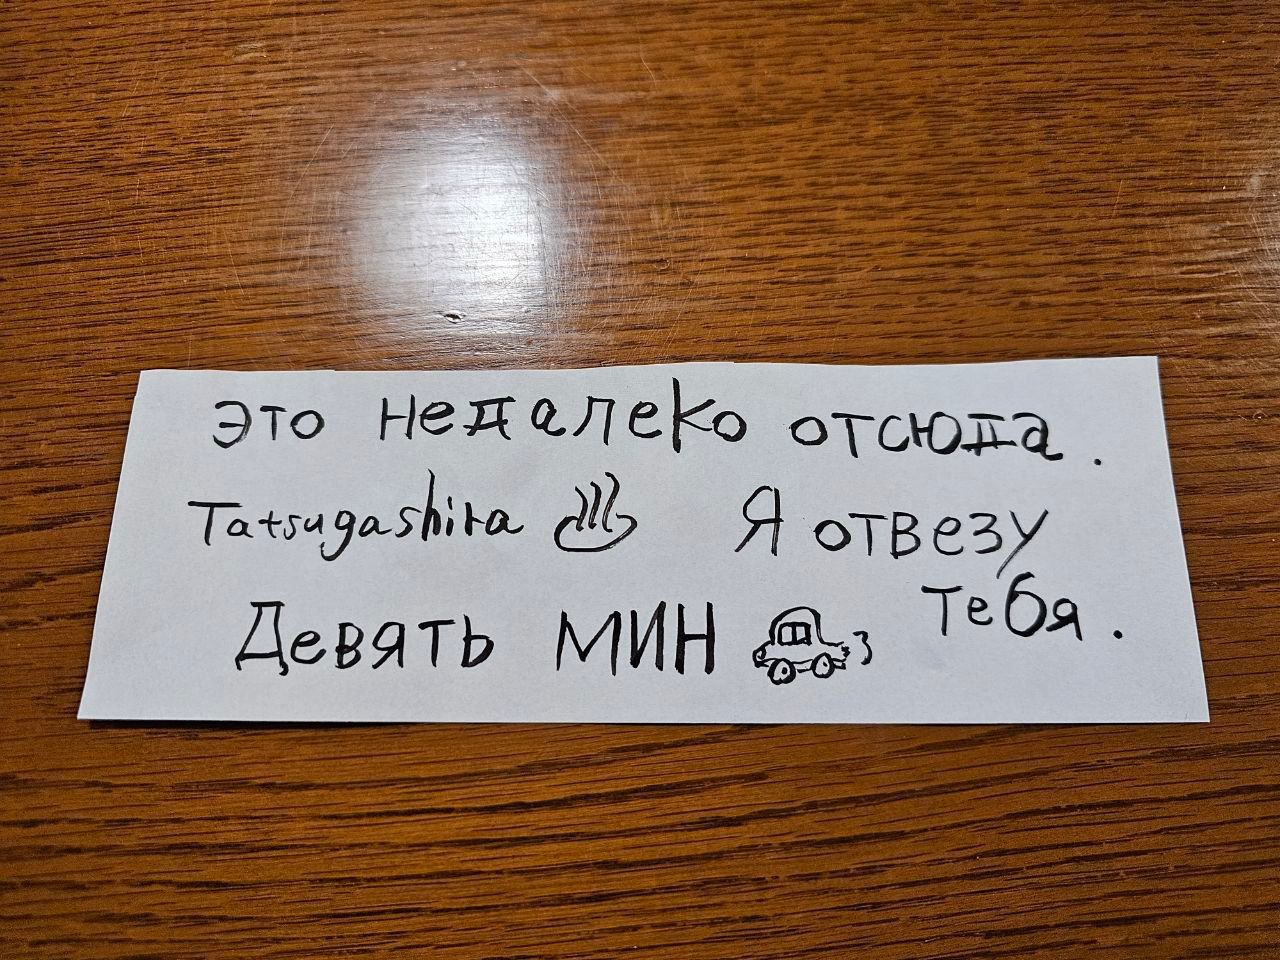 это недалеко отсюда.
Tatsugashira ♨ Я отвезу
тебя.
Девять мин